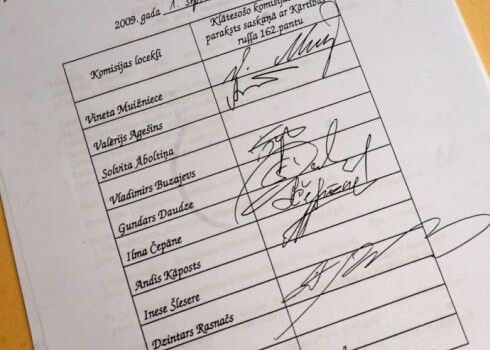 2009. gada 1.
Klātesošo komisijas
paraksts saskaņā ar Kārtības
ruļļa 162.pantu
Komisijas locekļi
Vineta Muižniece
Valērijs Agešins
Solvita Āboltiņa
Vladimirs Buzajevs
Gundars Daudze
Ilma Čepāne
Andis Kāposts
Inese Šlesere
Dzintars Rasnačs